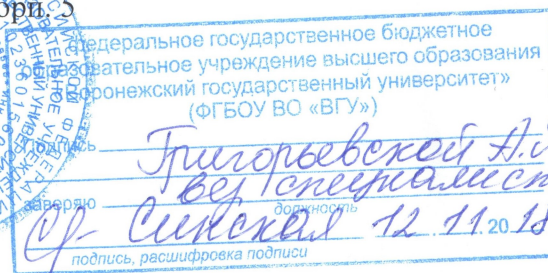 федеральное государственное бюджетное
образовательное учреждение высшего образования
«Воронежский государственный университет»
(ФГБОУ ВО «ВГУ»)
Подпись Григорьевской А.
вед специалист
заверяю должность
Синская 12.11.2018
подпись, расшифровка подписи